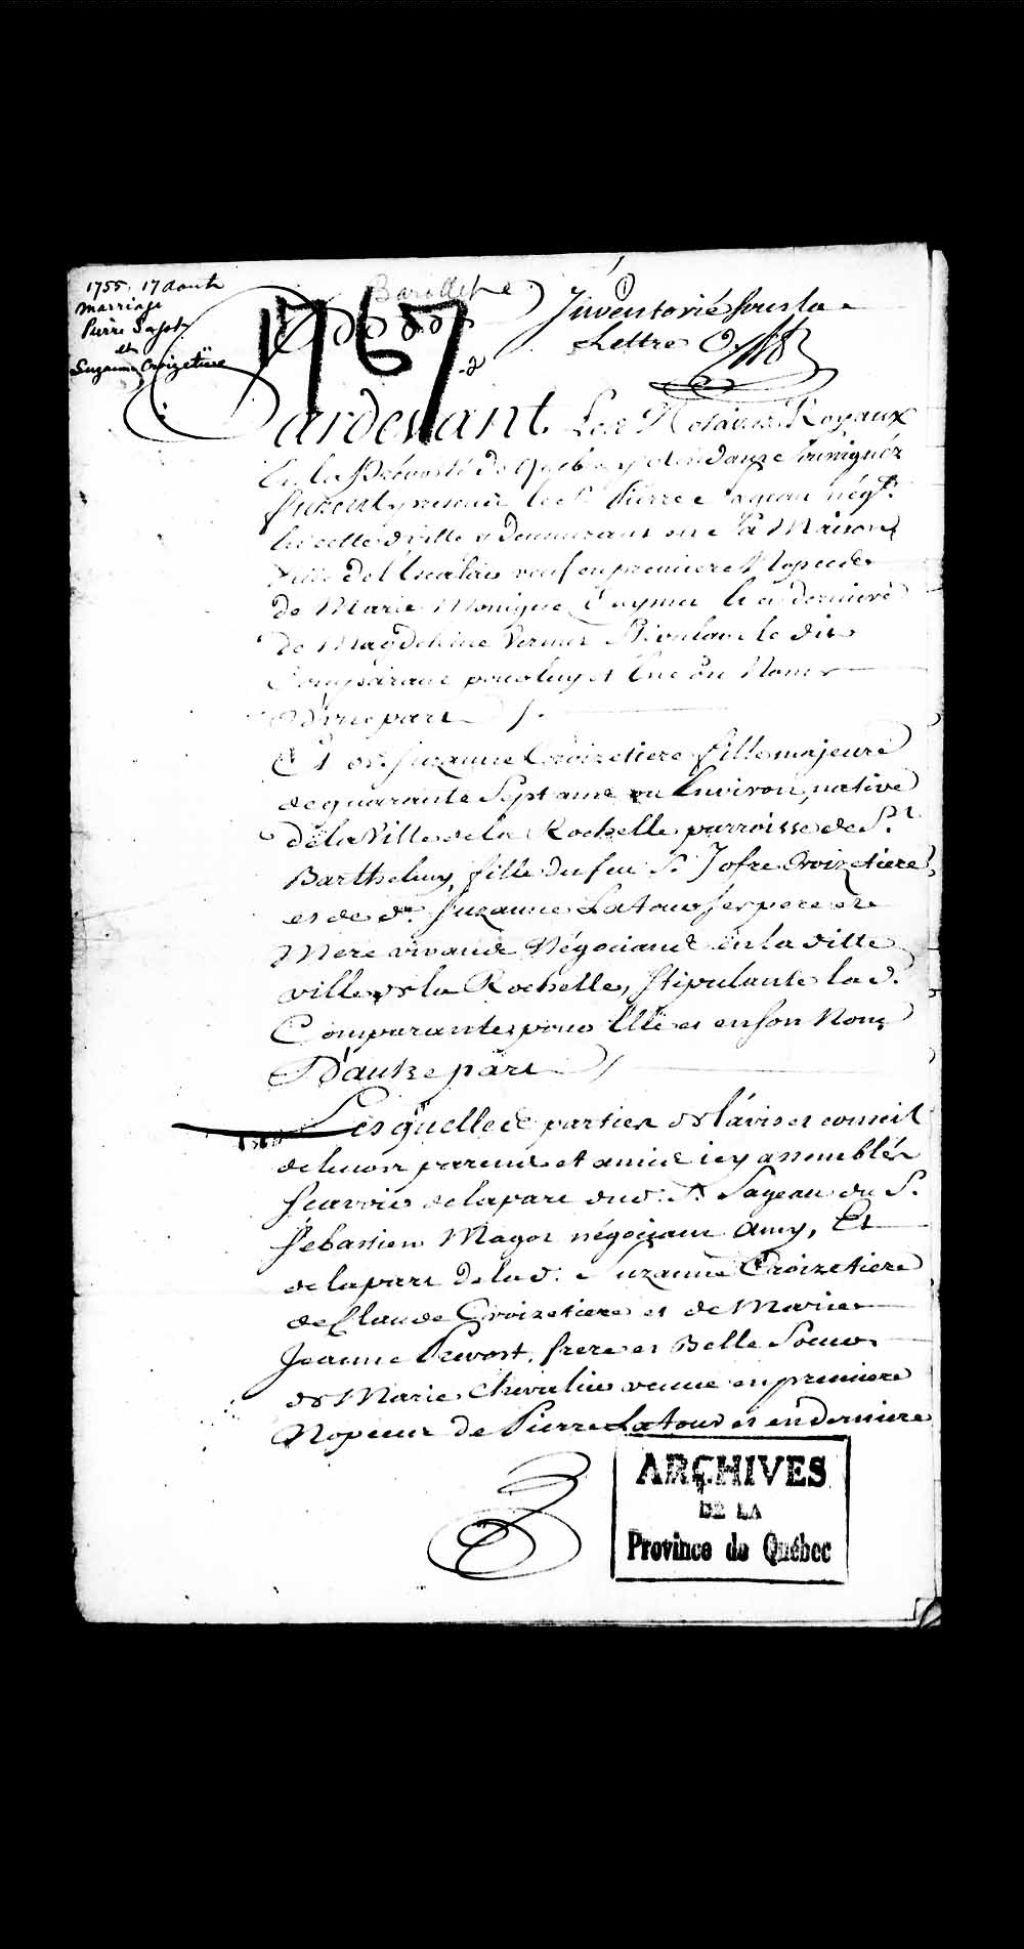 1755. 17 Aoust
Marriage
Pierre Sajot
et
Suzanne Croizetiere
Barollet
1767
Inventorié sous la
Lettre
Pardevant Les Notaires Royaux
En la Prévosté de Quebec y residans soussignéz
furent presents le Sr Pierre négt.
en cette ville y demeurant en sa Maison
veuf en premiere Nopces
de Marie Monique et en derniere
de Magdeleine Vernet Stipulant le dit
Comparant pour luy et En son Nom
D'une part
Et Suzanne Croizetiere fille majeure
de quarante Sept ans ou Environ, native
de la Ville de la Rochelle parroisse de St.
Barthelmy, fille du feu S. Jofre Croizetiere
et de de Suzanne Latour ses pere et
Mere vivant Négociant en la ditte
ville de la Rochelle, stipulante lad.
Comparante pour Elle et en son Nom
D'autre part
Lesquelles parties de l'avis et conseil
de leurs parents et amis icy assemblés
scavoir de la part dud. Sr. Sageau du S.
Sebastien Magot négociant amy, Et
de la part de lad. Suzanne Croizetiere
de Claude Croizetiere et de Marie
Jeanne Prevost, frere et Belle Soeur
de Marie Chevalier veuve en premiere
Nopces de Pierre Latour et en derniere
ARCHIVES
DE LA
Province de Québec